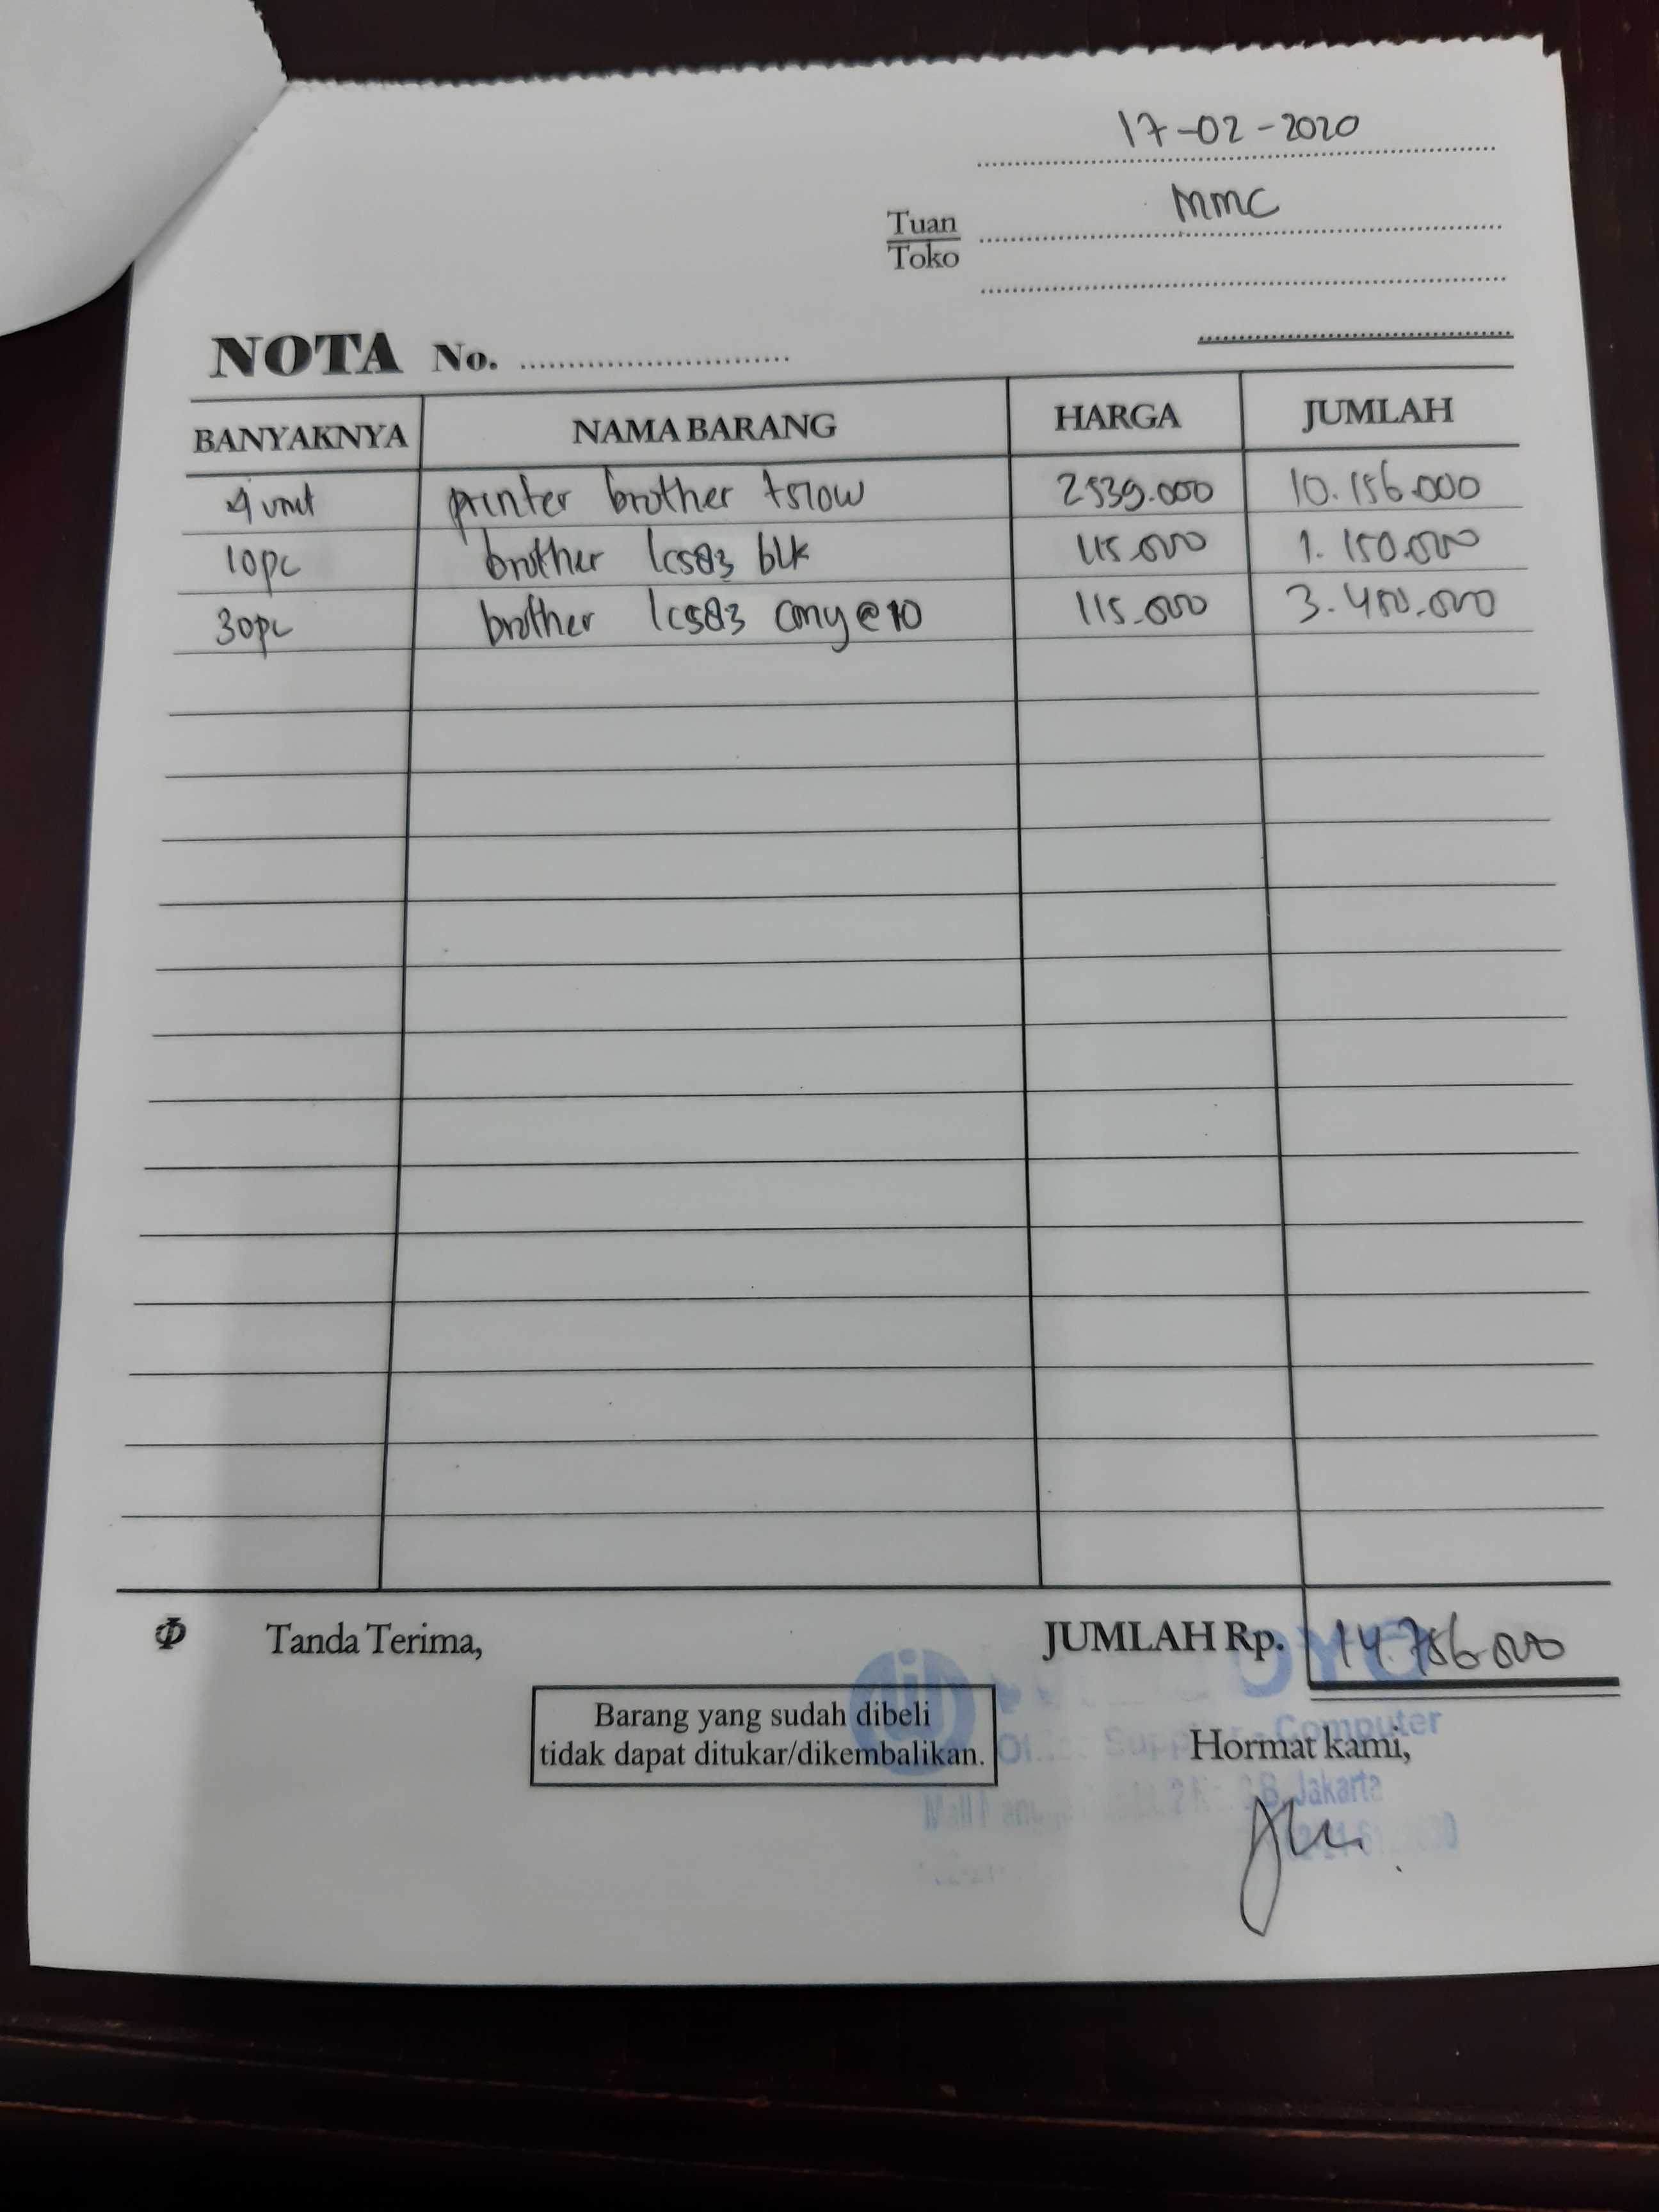 17-02-2020
Tuan
Toko
MMC
NOTA No.
BANYAKNYA NAMA BARANG HARGA JUMLAH
4 unit printer brother t510w 2539.000 10.156.000
10pc brother lc583 blk 115.000 1.150.000
30pc brother lc583 cmy @ 10 115.000 3.450.000
Tanda Terima, JUMLAH Rp. 14.756.000
Barang yang sudah dibeli
tidak dapat ditukar/dikembalikan.
Computer
Hormat kami,
Jakarta